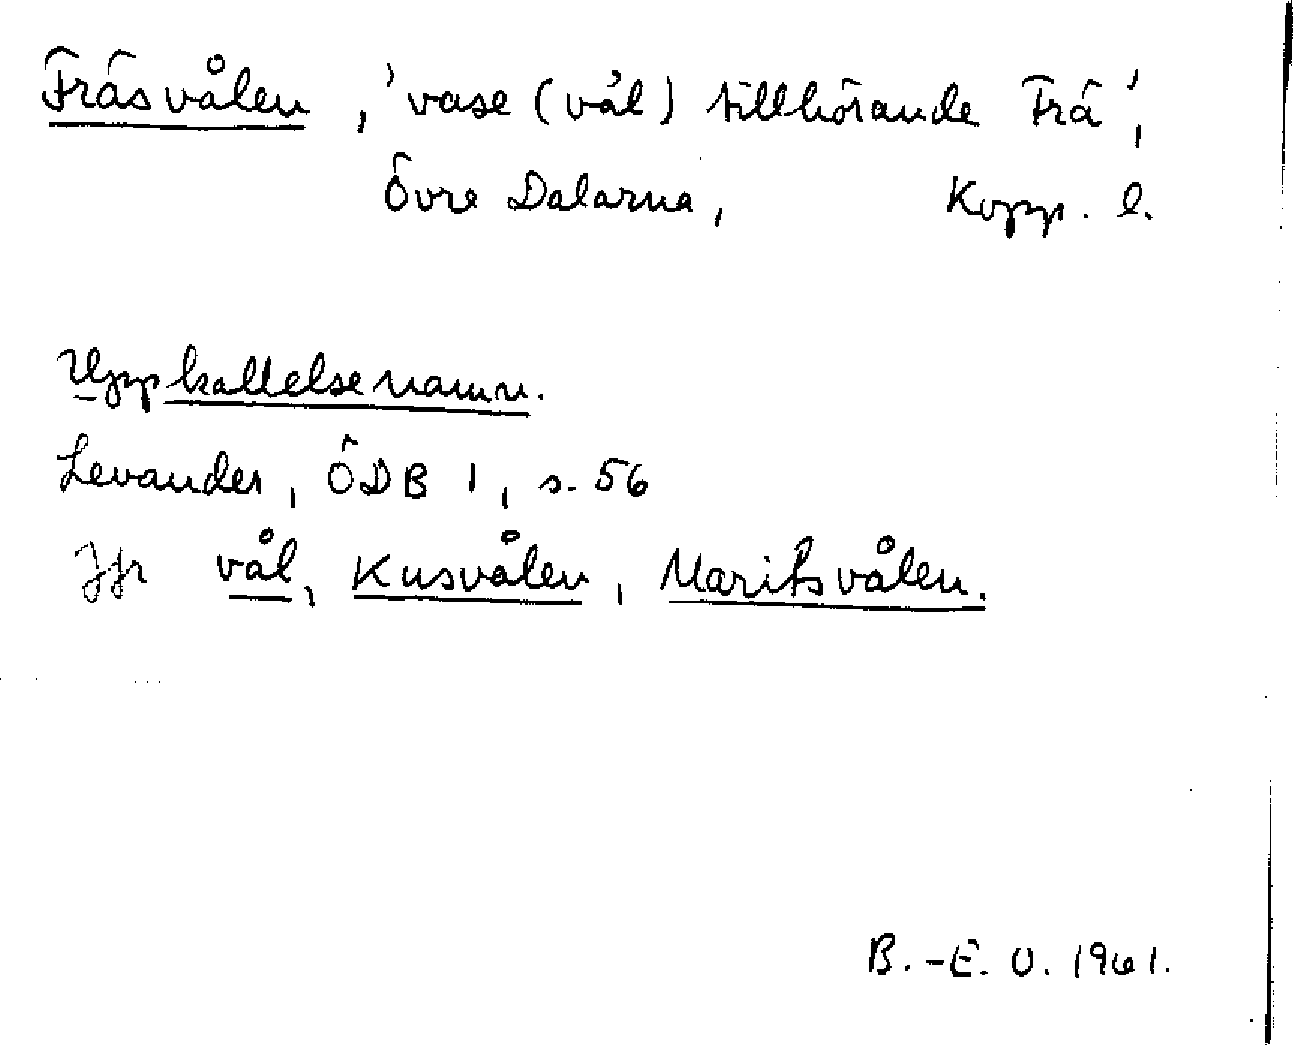 Fräsvålen, 'vase (vål) tillhörande Frä',
Övre Dalarna, Kopp. l.
Uppkallelsenamn.
Levander, ÖDB 1, s. 56
Jfr vål, Kusvålen, Maritsvålen.
B.-E. O. 1961.